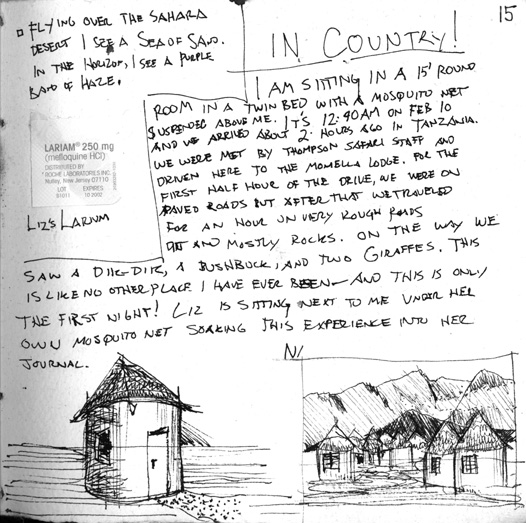 15
FLYING OVER THE SAHARA
DESERT I SEE A SEA OF SAND.
IN THE HORIZON, I SEE A PURPLE
BAND OF HAZE.
IN COUNTRY!
I AM SITTING IN A 15' ROUND
ROOM IN A TWIN BED WITH A MOSQUITO NET
SUSPENDED ABOVE ME. IT'S 12:40AM ON FEB 10
AND WE ARRIVED ABOUT 2 HOURS AGO IN TANZANIA.
WE WERE MET BY THOMPSON SAFARI STAFF AND
DRIVEN HERE TO THE MOMELLA LODGE. FOR THE
FIRST HALF HOUR OF THE DRIVE, WE WERE ON
PAVED ROADS BUT AFTER THAT WE TRAVELED
FOR AN HOUR ON VERY ROUGH ROADS
AND MOSTLY ROCKS. ON THE WAY WE
SAW A DIK-DIK, A BUSHBUCK, AND TWO GIRAFFES. THIS
IS LIKE NO OTHER PLACE I HAVE EVER BEEN — AND THIS IS ONLY
THE FIRST NIGHT! LIZ IS SITTING NEXT TO ME UNDER HER
OWN MOSQUITO NET SOAKING THIS EXPERIENCE INTO HER
JOURNAL.
LARIAM® 250 mg
(mefloquine HCl)
DISTRIBUTED BY
ROCHE LABORATORIES INC.
Nutley, New Jersey 07110
LOT EXPIRES
10 2002
LIZ'S LARIUM